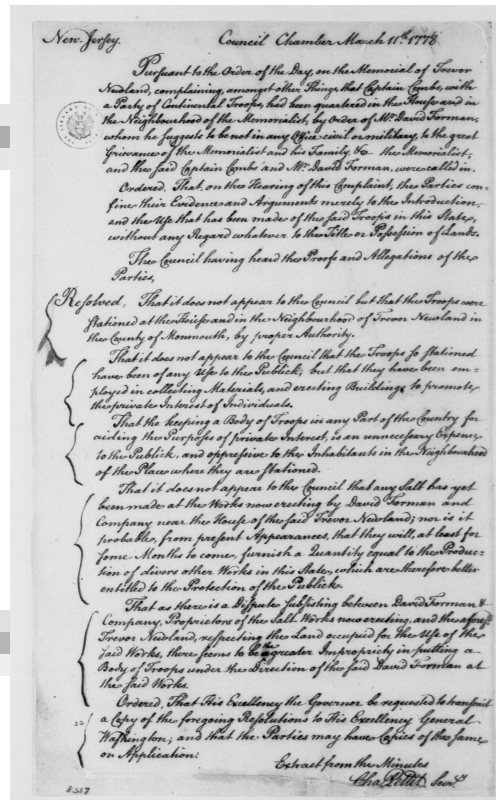 New Jersey. Council Chamber March 11th. 1778
Pursuant to the Order of the Day, on the Memorial of Trevor
Newland, complaining, amongst other Things that Captain Combs, with
a Party of Continental Troops, had been quartered in the House and in
the Neighbourhood of the Memorialist, by Order of Mr. David Forman,
whom he suggests to be not in any Office civil or military, to the great
Grievance of the Memorialist and his Family &c the Memorialist,
and the said Captain Combs and Mr. David Forman, were called in.
Ordered, That, on the Hearing of this Complaint, the Parties con-
fine their Evidence and Arguments merely to the Introduction,
and the Use that has been made of the said Troops in this State,
without any Regard whatever to the Title or Possession of Lands.
The Council having heard the Proofs and Allegations of the
Parties,
Resolved, That it does not appear to the Council but that the Troops were
stationed at the House and in the Neighbourhood of Trevor Newland in
the County of Monmouth, by proper Authority.
That it does not appear to the Council that the Troops so stationed
have been of any Use to the Publick; but that they have been em-
ployed in collecting Materials, and erecting Buildings to promote
the private Interest of Individuals.
That the keeping a Body of Troops in any Part of the Country for
aiding the Purposes of private Interest, is an unnecessary Expence
to the Publick, and oppressive to the Inhabitants in the Neighbourhood
of the Place where they are stationed.
That it does not appear to the Council that any Salt has yet
been made at the Works now erecting by David Forman and
Company near the House of the said Trevor Newland; nor is it
probable, from present Appearances, that they will, at least for
some Months to come, furnish a Quantity equal to the Produc-
tion of divers other Works in this State, which are therefore better
entitled to the Protection of the Publick.
That as there is a Dispute subsisting between David Forman &
Company, Proprietors of the Salt Works now erecting, and the aforesd
Trevor Newland, respecting the Land occupied for the Use of the
said Works, there seems to be the greater Impropriety in putting a
Body of Troops under the Direction of the said David Forman at
the said Works.
Ordered, That His Excellency the Governor be requested to transmit
a Copy of the foregoing Resolutions to His Excellency General
Washington; and that the Parties may have Copies of the same
on Application.
Extract from the Minutes
Cha. Pettit Secy.